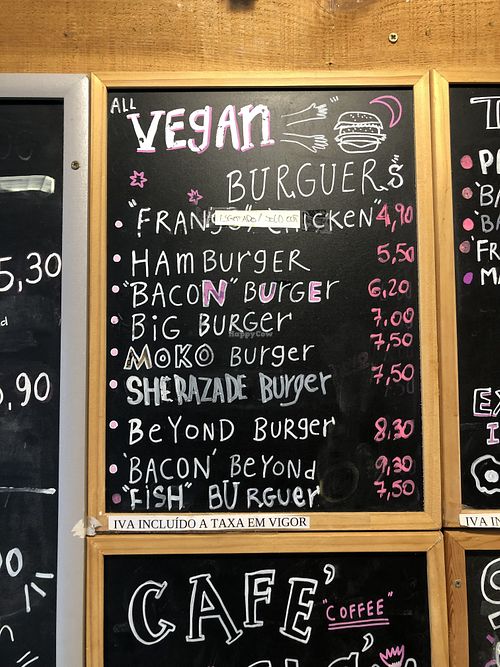 ALL
VEGAN
BURGUERS
"FRANGO" CHICKEN" 4,90
HAMBURGER 5,50
"BACON" BURGER 6,20
BiG BURGER 7,00
MOKO BURGER 7,50
SHERAZADE BURGER 7,50
BEYOND BURGER 8,30
'BACON' BEYOND 9,30
"FISH" BURGUER 7,50
IVA INCLUÍDO A TAXA EM VIGOR
CAFE'
"COFFEE"
5,30
,90
IVA IN
HappyCow